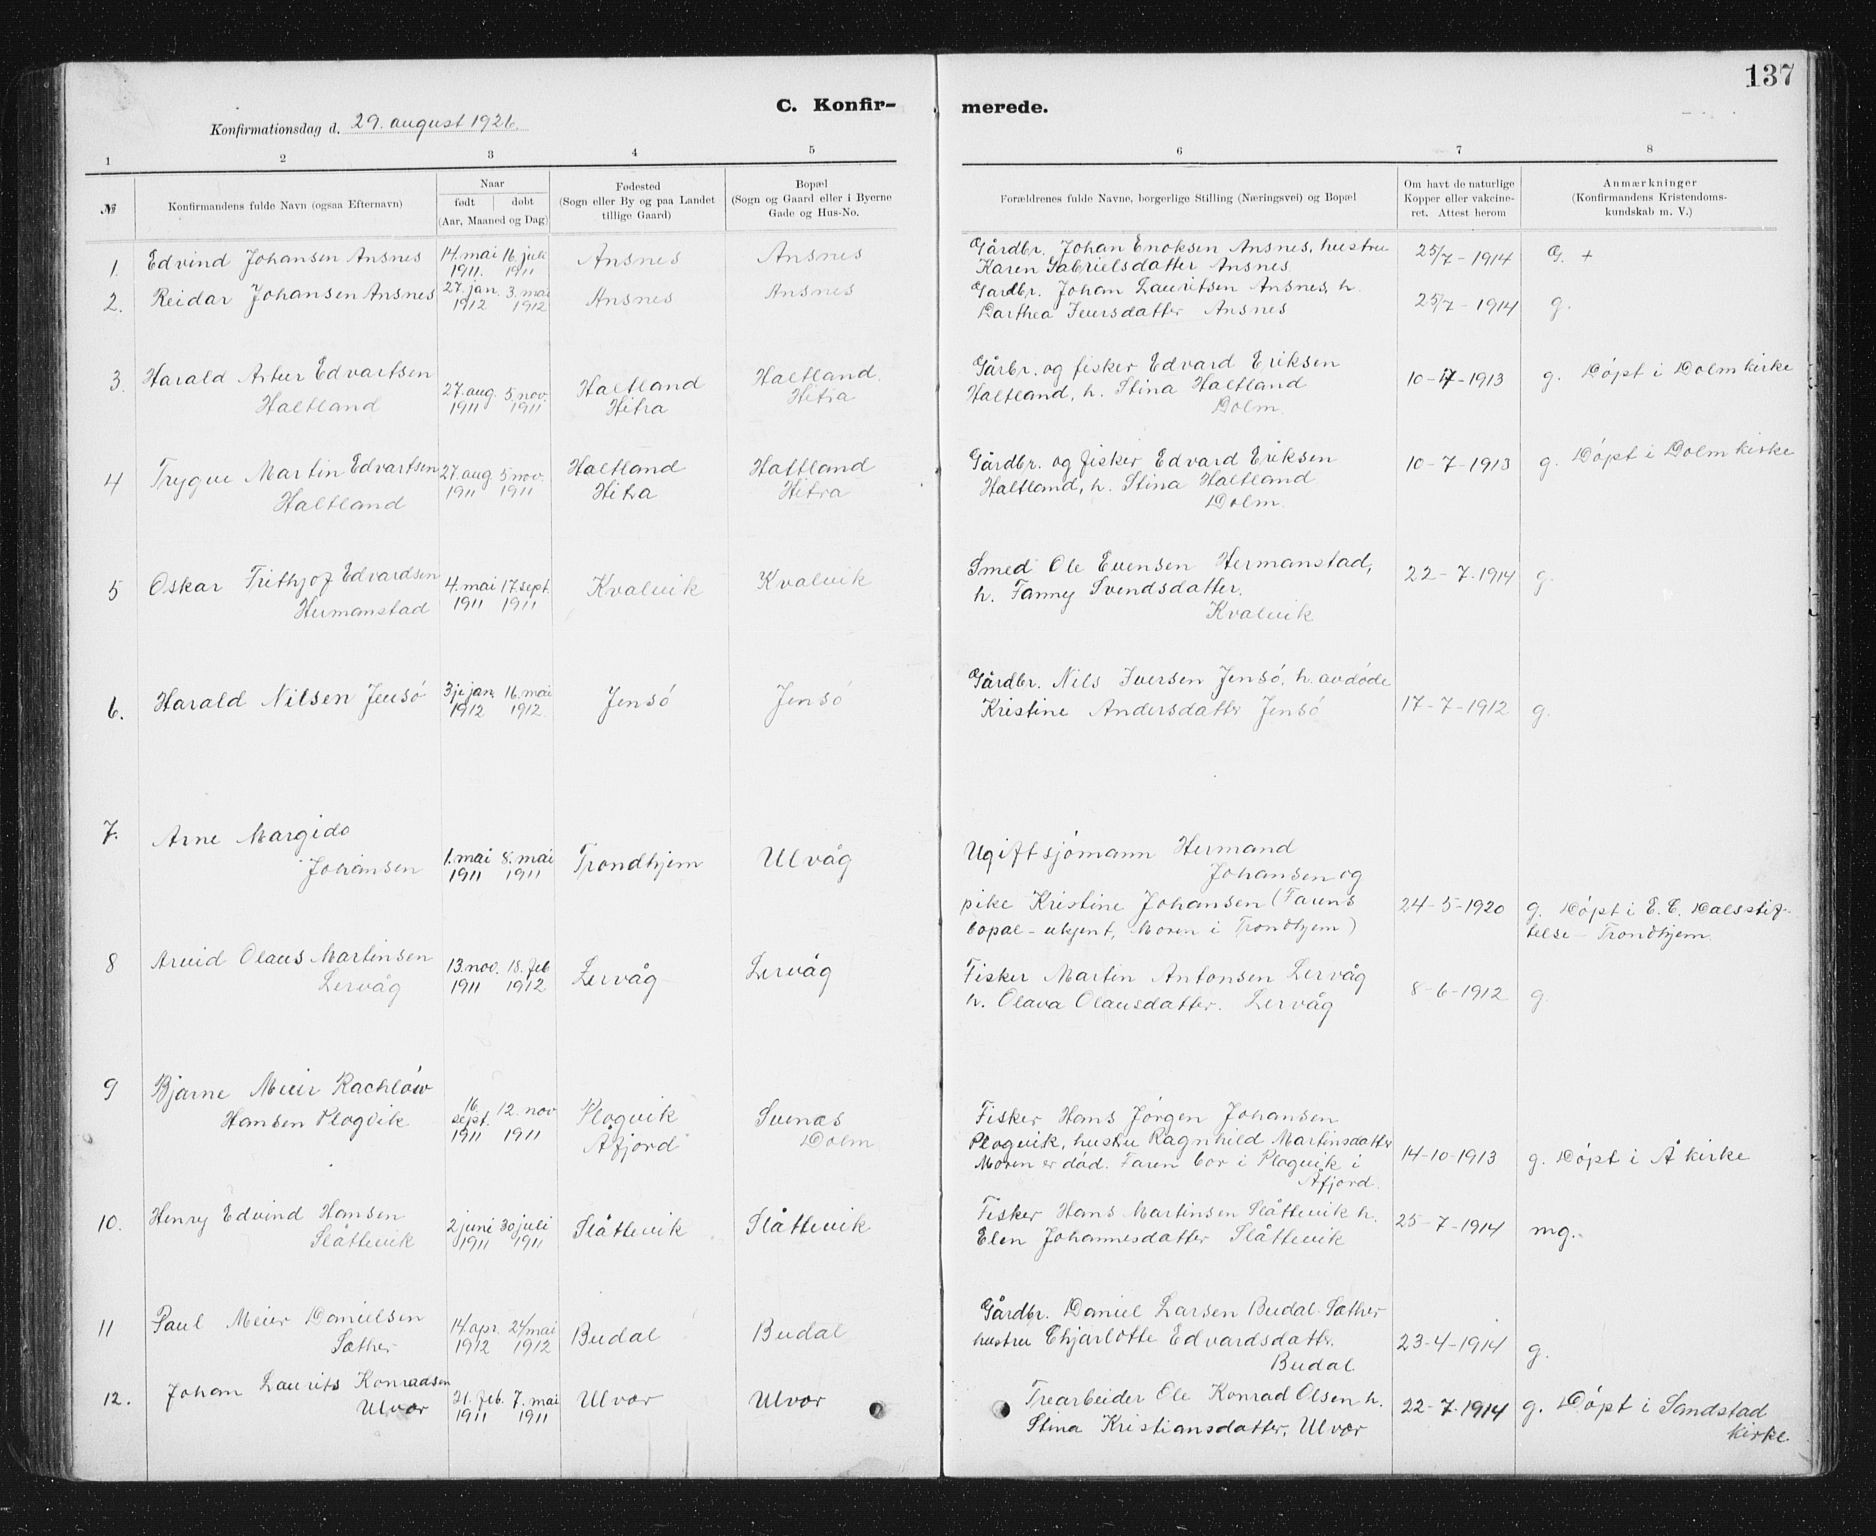 137
C. Konfir-
merede.
Konfirmationsdag d. 29. august 1926.
1 2 3 4 5 6 7 8
№
Konfirmandens fulde Navn (ogsaa Efternavn)
Naar
født døbt
(Aar, Maaned og Dag)
Fødested
(Sogn eller By og paa Landet
tillige Gaard)
Bopæl
(Sogn og Gaard eller i Byerne
Gade og Hus-No.
Forældrenes fulde Navne, borgerlige Stilling (Næringsvei) og Bopæl
Om havt de naturlige
Kopper eller vakcine-
ret. Attest herom
Anmærkninger
(Konfirmandens Kristendoms-
kundskab m. V.)
1. Edvind Johansen Ansnes 14. mai 16. juli Ansnes Ansnes Gårdbr. Johan Enoksen Ansnes, hustru 25/7 - 1914 G. +
1911. 1911 Karen Gabrielsdatter Ansnes
2. Reidar Johansen Ansnes 27. jan. 3. mai Ansnes Ansnes Gardbr. Johan Lauritsen Ansnes, h. 25/7 - 1914 g.
1912 1912 Darthea Iversdatter Ansnes
3. Harald Artur Edvartsen Gårbr. og fisker Edvard Eriksen
Haltland 27. aug. 5. nov. Haltland Haltland Haltland, h. Stina Haltland 10-7-1913 g. Döpt i Dolm kirke
1911 1911 Hitra Hitra Dolm.
4 Trygve Martin Edvartsen 27. aug. 5 nov. Haltland Haltland Gårdbr. og fisker Edvard Eriksen 10-7-1913 g. Döpt i Dolm kirke
Haltland 1911 1911 Hitra Hitra Haltland, h. Stina Haltland
Dolm.
5 Oskar Frithjof Edvardsen 4. mai 17. sept. Kvalvik Kvalvik Smed Ole Evensen Hermanstad, 22-7-1914 g.
Hermanstad 1911 1911 h. Fanny Svendsdatter.
Kvalvik
6. Harald Nilsen Jensö 3je jan. 16. mai Jensö Jensö Gårdbr. Nils Iversen Jensö, h. avdöde
1912 1912. Kristine Andersdatter Jensö 17-7-1912 g.
7. Arne Margido
Johansen 1. mai 8. mai Trondhjem Ulvåg Ugift sjömann Hermand
1911 1911 Johansen og
pike Kristine Johansen (Farens 24-5-1920 g. Döpt i E. C. Dalsstif-
bopæl - ukjent, Moren i Trondhjem) telse - Trondhjem.
8 Arvid Olaus Martinsen 13. nov. 18. feb Lervåg Lervåg Fisker Martin Antonsen Lervåg
Lervåg 1911 1912 h. Olava Olausdatter. Lervåg 8-6-1912 g.
9 Bjarne Meier Rachlöw
Hansen Plogvik 16 sept. 12. nov Plogvik Svenæs Fisker Hans Jörgen Johansen
1911 1911 Åfjord Dolm Plogvik, hustru Ragnhild Martinsdatter
Moren er död. Faren bor i Plogvik i 14-10-1913 g. Döpt i Å kirke
Åfjord.
10. Henry Edvind Hansen 2 juni 30 juli Slåttevik Slåttevik Fisker Hans Martinsen Slåttevik h. 25-7-1914 mg.
Slåttevik 1911 1911 Elen Johannesdatter Slåttevik
11 Paul Meier Danielsen 14. apr. 24 mai Budal Budal Gårdbr. Daniel Larsen Budal-Sæther
Sæther 1912 1912 hustru Chjarlotte Edvardsdatter. 23-4-1914 g.
Budal
12. Johan Laurits Konradsen 21. feb. 7. mai Ulvær Ulvær Trearbeider Ole Konrad Olsen h. 22-7-1914 g. Döpt i Sandstad
Ulvær 1911 1911 Stina Kristiansdatter, Ulvær kirke